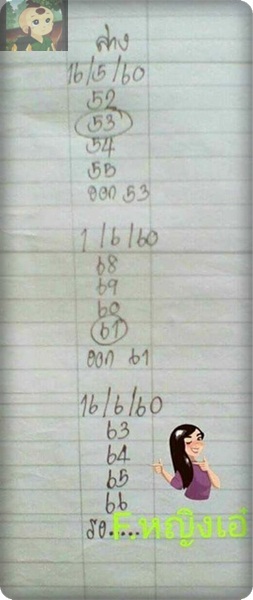 ล่าง
16/5/60
52
53
54
55
ออก 53
1/6/60
68
69
60
61
ออก 61
16/6/60
63
64
65
66
รอ.....
F.หญิงเอ๋